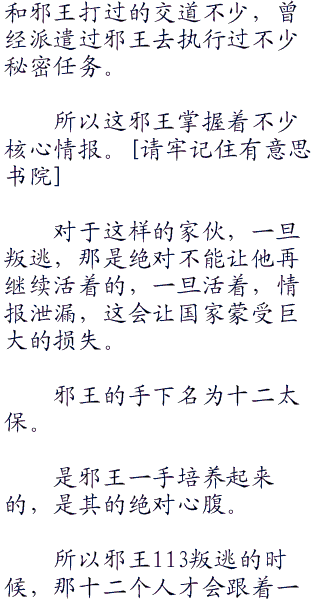 和邪王打过的交道不少，曾
经派遣过邪王去执行过不少
秘密任务。
所以这邪王掌握着不少
核心情报。[请牢记住有意思
书院]
对于这样的家伙，一旦
叛逃，那是绝对不能让他再
继续活着的，一旦活着，情
报泄漏，这会让国家蒙受巨
大的损失。
邪王的手下名为十二太
保。
是邪王一手培养起来
的，是其的绝对心腹。
所以邪王113叛逃的时
候，那十二个人才会跟着一